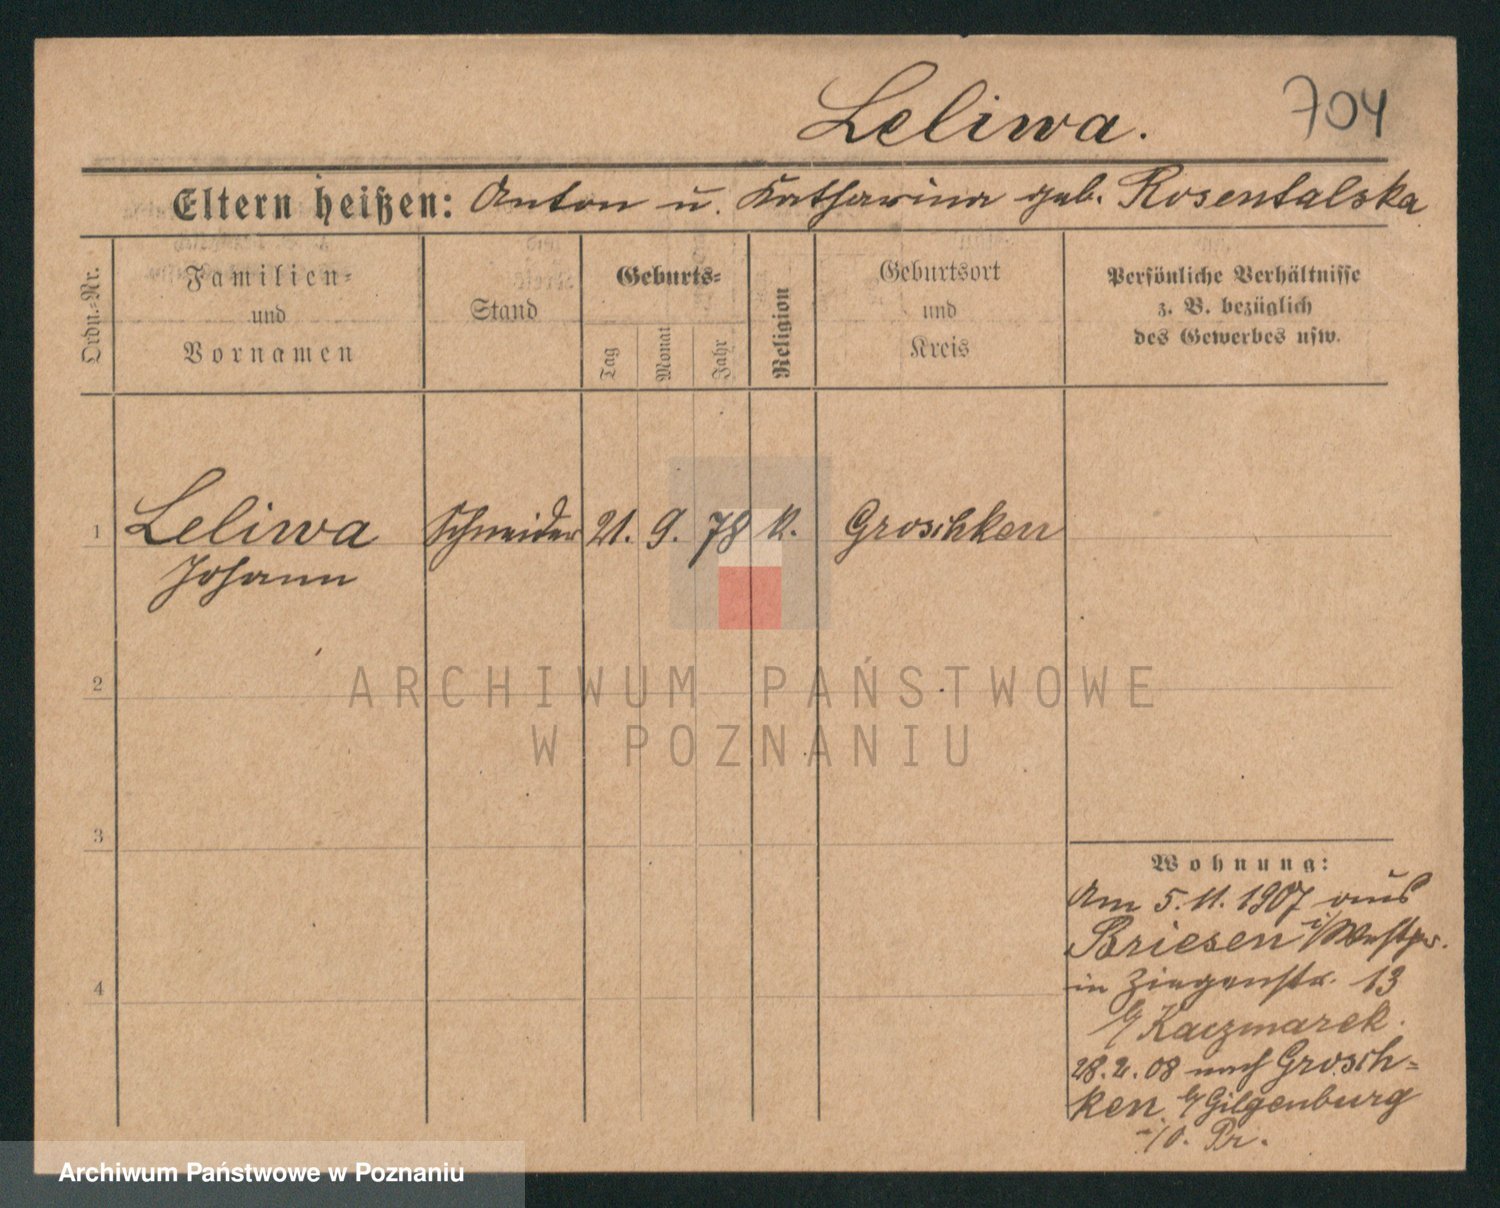 Leliwa. 704
Eltern heißen: Anton u. Katharina geb. Rosentalska
Ordn.-Nr.
Familien-
und
Vornamen
Stand
Geburts-
Tag
Monat
Jahr
Religion
Geburtsort
und
Kreis
Persönliche Verhältnisse
z. B. bezüglich
des Gewerbes usw.
1 Leliwa Schneider 21. 9. 78 K. Groschken
Johann
2
ARCHIWUM PAŃSTWOWE
W POZNANIU
3
4
Wohnung:
Am 5.11.1907 aus
Briesen i/Westpr.
in Ziegenstr. 13
b/ Kaczmarek.
28.2.08 nach Grosch-
ken b/ Gilgenburg
i/O. Pr.
Archiwum Państwowe w Poznaniu